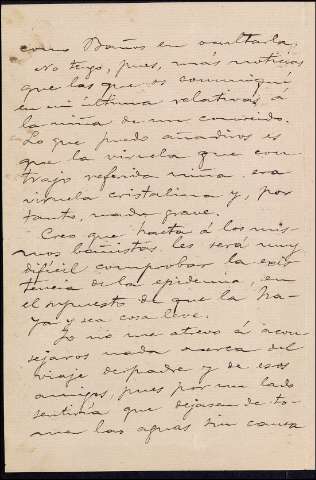 como Baños en ocultarla.
No tengo, pues, más noticias
que las que os comuniqué
en mi última relativas á
la niña de un conocido.
Lo que puedo añadiros es
que la viruela que con-
trajo referida niña era
viruela cristalina y, por
tanto, nada grave.
Creo que hasta á los mis-
mos bañistas les será muy
difícil comprobar la exis-
tencia de la epidemia, en
el supuesto de que la ha-
ya y sea cosa leve.
Yo no me atrevo á acon-
sejaros nada acerca del
viaje de padre y de esos
amigos, pues por un lado
sentiría que dejasen de to-
mar las aguas sin causa